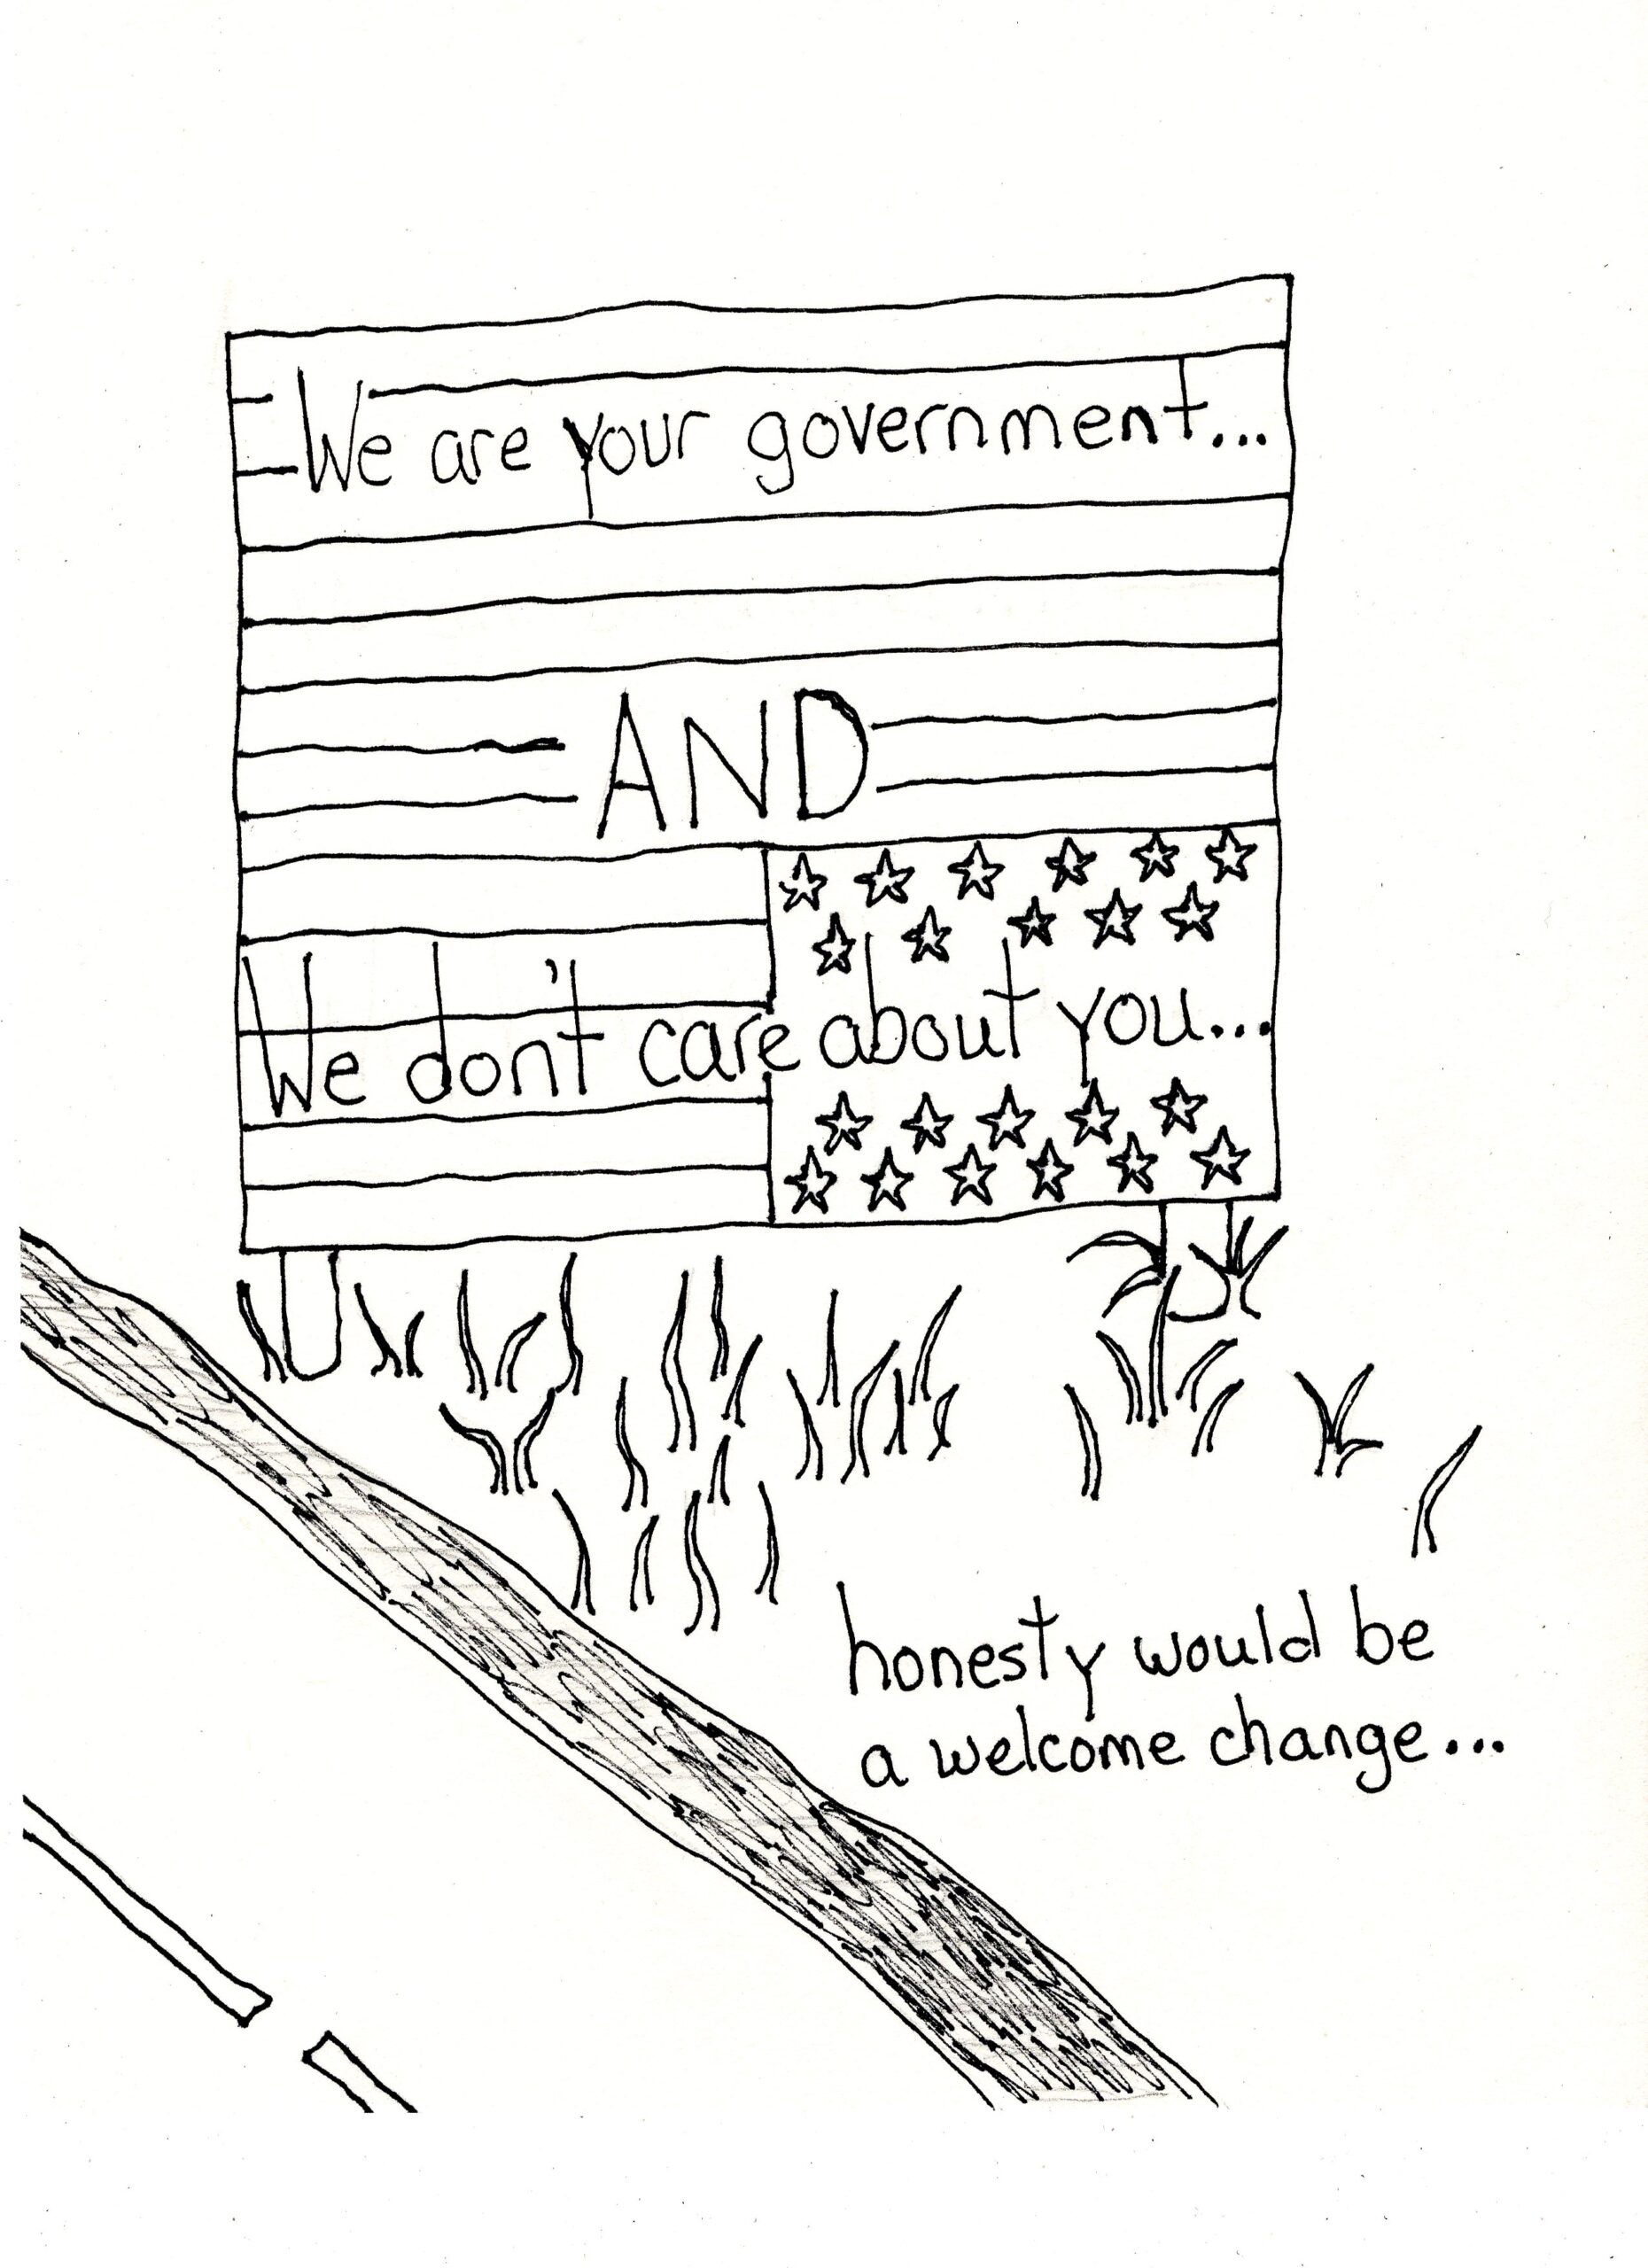 We are your government...
AND
We don't care about you...
honesty would be
a welcome change...